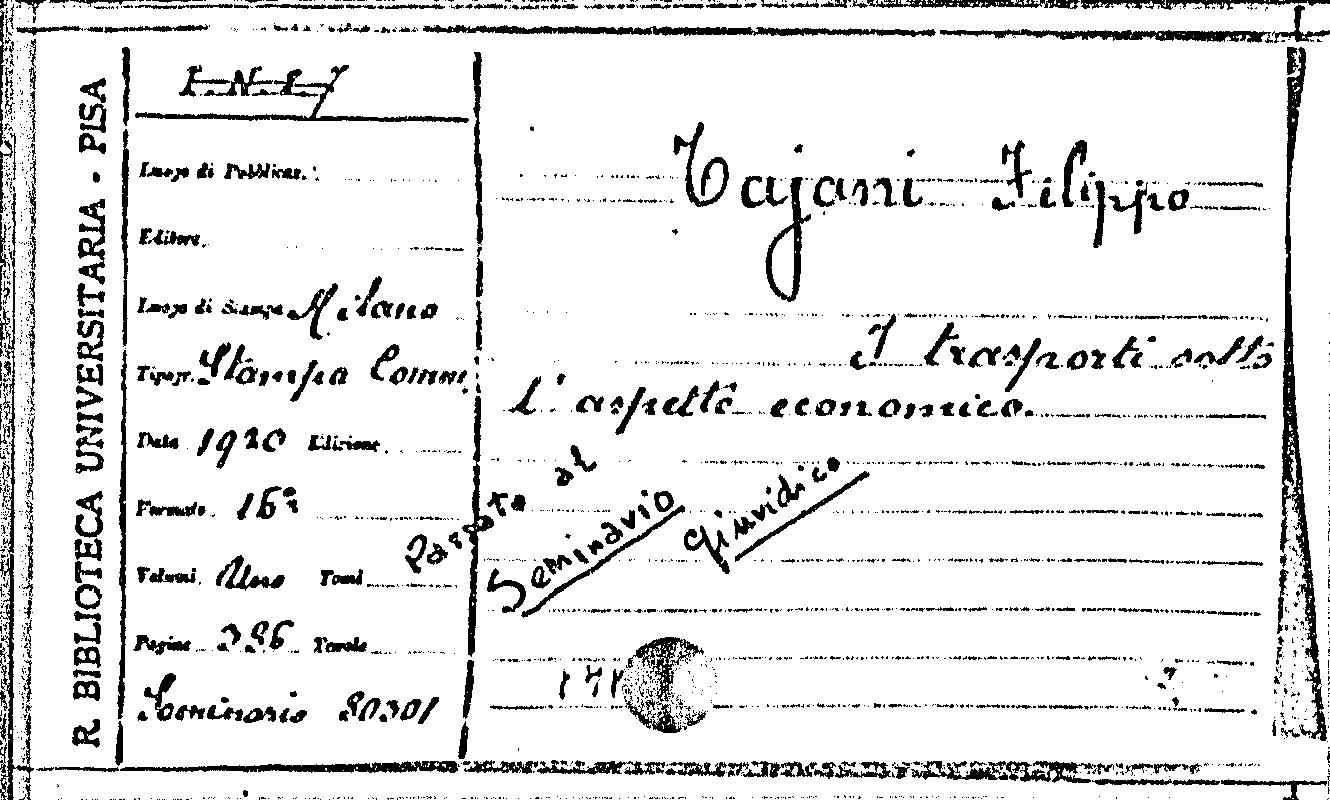 R BIBLIOTECA UNIVERSITARIA - PISA
I.N.E.7
Luogo di Pubblicaz.
Editore.
Luogo di Stampa Milano
Tipogr. Stampa Comm.
Data 1920 Edizione.
Formato. 16º
Volumi. Uno Tomi
Pagine Tavole
Seminario 80301
Tajani Filippo
I trasporti sotto
l'aspetto economico.
Passato al
Seminario Giuridico